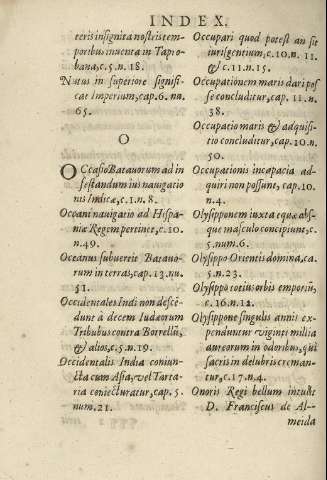 INDEX.
teris insignita nostris tem-
poribus inuenta in Tapro-
bana, c.5.n.18.
Nutus in superiore signifi-
cat Imperium, cap.6.nu.
65.
O
OCcasio Batauorum ad in
festandum iui nauigatio
nis Indicæ, c.1.n.8.
Oceani nauigatio ad Hispa-
niæ Regem pertinet, c.10.
n.49.
Oceanus subuertit Batauo-
rum in terras, cap.13.nu.
51.
Occidentales Indi non descē-
dunt à decem Iudæorum
Tribubus contra Borrellū,
& alios, c.5.n.19.
Occidentalis India coniun-
cta cum Asia, vel Tarta-
ria coniecturatur, cap.5.
num.21.
Occupari quod potest an sit
iuris gentium, c.10.n.11.
& c.11.n.15.
Occupationem maris dari pos
se concluditur, cap.11.n.
38.
Occupatio maris & adquisi-
tio concluditur, cap.10.n.
50.
Occupationis incapacia ad-
quiri non possunt, cap.10.
n.4.
Olysiponem iuxta equæ abs-
que masculo concipiunt, c.
5.num.6.
Olysippo Orientis domina, ca.
5.n.23.
Olysippo totius orbis emporiū,
c.16.n.12.
Olysippone singulis annis ex-
penduntur viginti millia
aureorum in odoribus, qui
sacris in delubris creman-
tur, c.17.n.4.
Onoris Regi bellum intulit
D. Franciscus de Al-
meida